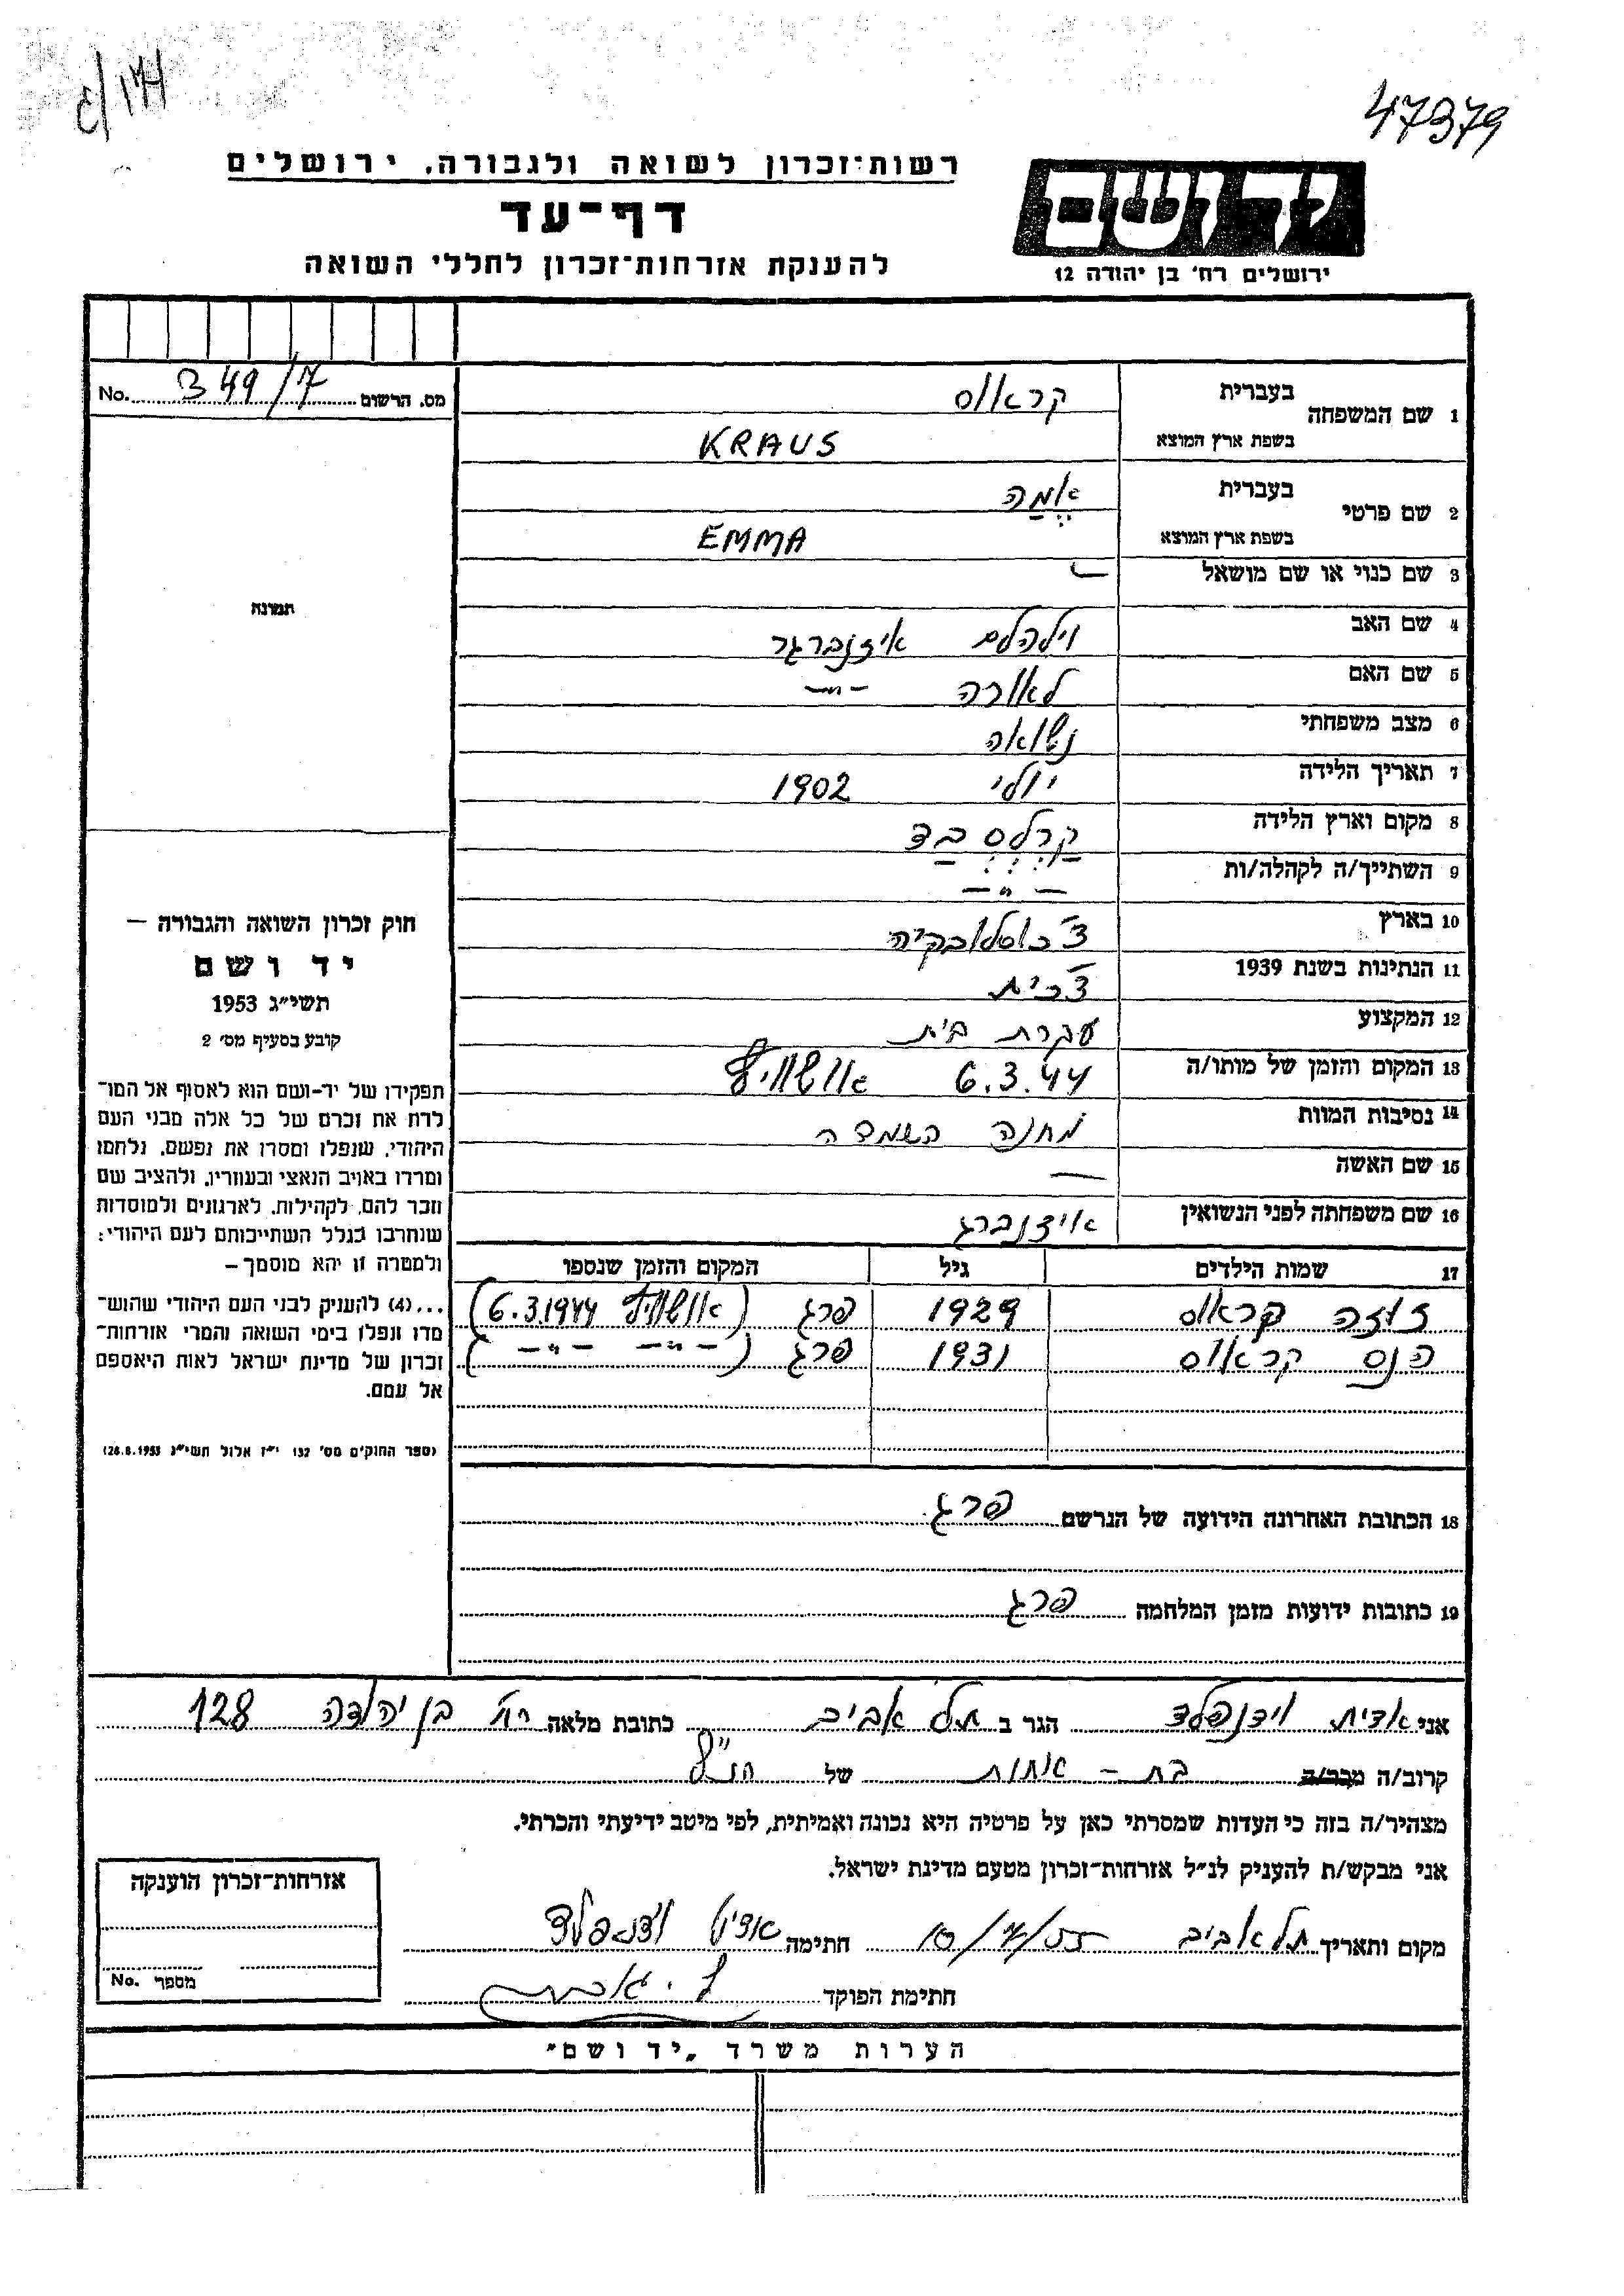 47379
רשות־זכרון לשואה ולגבורה, ירושלים
דף־עד
להענקת אזרחות־זכרון לחללי השואה
יד ושם
ירושלים רח' בן יהודה 12
מס. הרשום 349/7 No.
1 שם המשפחה בעברית קראוס
בשפת ארץ המוצא KRAUS
2 שם פרטי בעברית אמה
בשפת ארץ המוצא EMMA
3 שם כנוי או שם מושאל —
תמונה
4 שם האב וילהלם איזנברגר
5 שם האם לאורה -"-
6 מצב משפחתי נשואה
7 תאריך הלידה יולי 1902
8 מקום וארץ הלידה קרלסבד
9 השתייך/ה לקהלה/ות -"-
10 בארץ צ'כוסלובקיה
11 הנתינות בשנת 1939 צ'כית
12 המקצוע עקרת בית
13 המקום והזמן של מותו/ה 6.3.44 אושוויץ
14 נסיבות המוות מחנה השמדה
15 שם האשה —
16 שם משפחתה לפני הנשואין איזנברג
17 שמות הילדים גיל המקום והזמן שנספו
קראוס 1929 פרג (אושוויץ 6.3.1944)
הנס קראוס 1931 פרג (-"- -"-)
18 הכתובת האחרונה הידועה של הנרשם פרג
19 כתובות ידועות מזמן המלחמה פרג
חוק זכרון השואה והגבורה —
יד ושם
תשי"ג 1953
קובע בסעיף מס' 2
תפקידו של יד־ושם הוא לאסוף אל המו־
לדת את זכרם של כל אלה מבני העם
היהודי, שנפלו ומסרו את נפשם, נלחמו
ומרדו באויב הנאצי ובעוזריו, ולהציב שם
וזכר להם, לקהילות, לארגונים ולמוסדות
שנחרבו בגלל השתייכותם לעם היהודי;
ולמטרה זו יהא מוסמך —
...(4) להעניק לבני העם היהודי שהוש־
מדו ונפלו בימי השואה והמרי אזרחות־
זכרון של מדינת ישראל לאות היאספם
אל עמם.
(ספר החוקים מס' 132 י"ז אלול תשי"ג 28.8.1953)
אני אדית וידנפלד הגר ב תל אביב כתובת מלאה רח' בן יהודה 128
קרוב/ה מכר/ה בת - אחות של הנ"ל
מצהיר/ה בזה כי העדות שמסרתי כאן על פרטיה היא נכונה ואמיתית, לפי מיטב ידיעתי והכרתי.
אני מבקש/ת להעניק לנ"ל אזרחות־זכרון מטעם מדינת ישראל.
מקום ותאריך תל אביב חתימה אדית וידנפלד
חתימת הפוקד
אזרחות־זכרון הוענקה
מספר No.
הערות משרד „יד ושם"